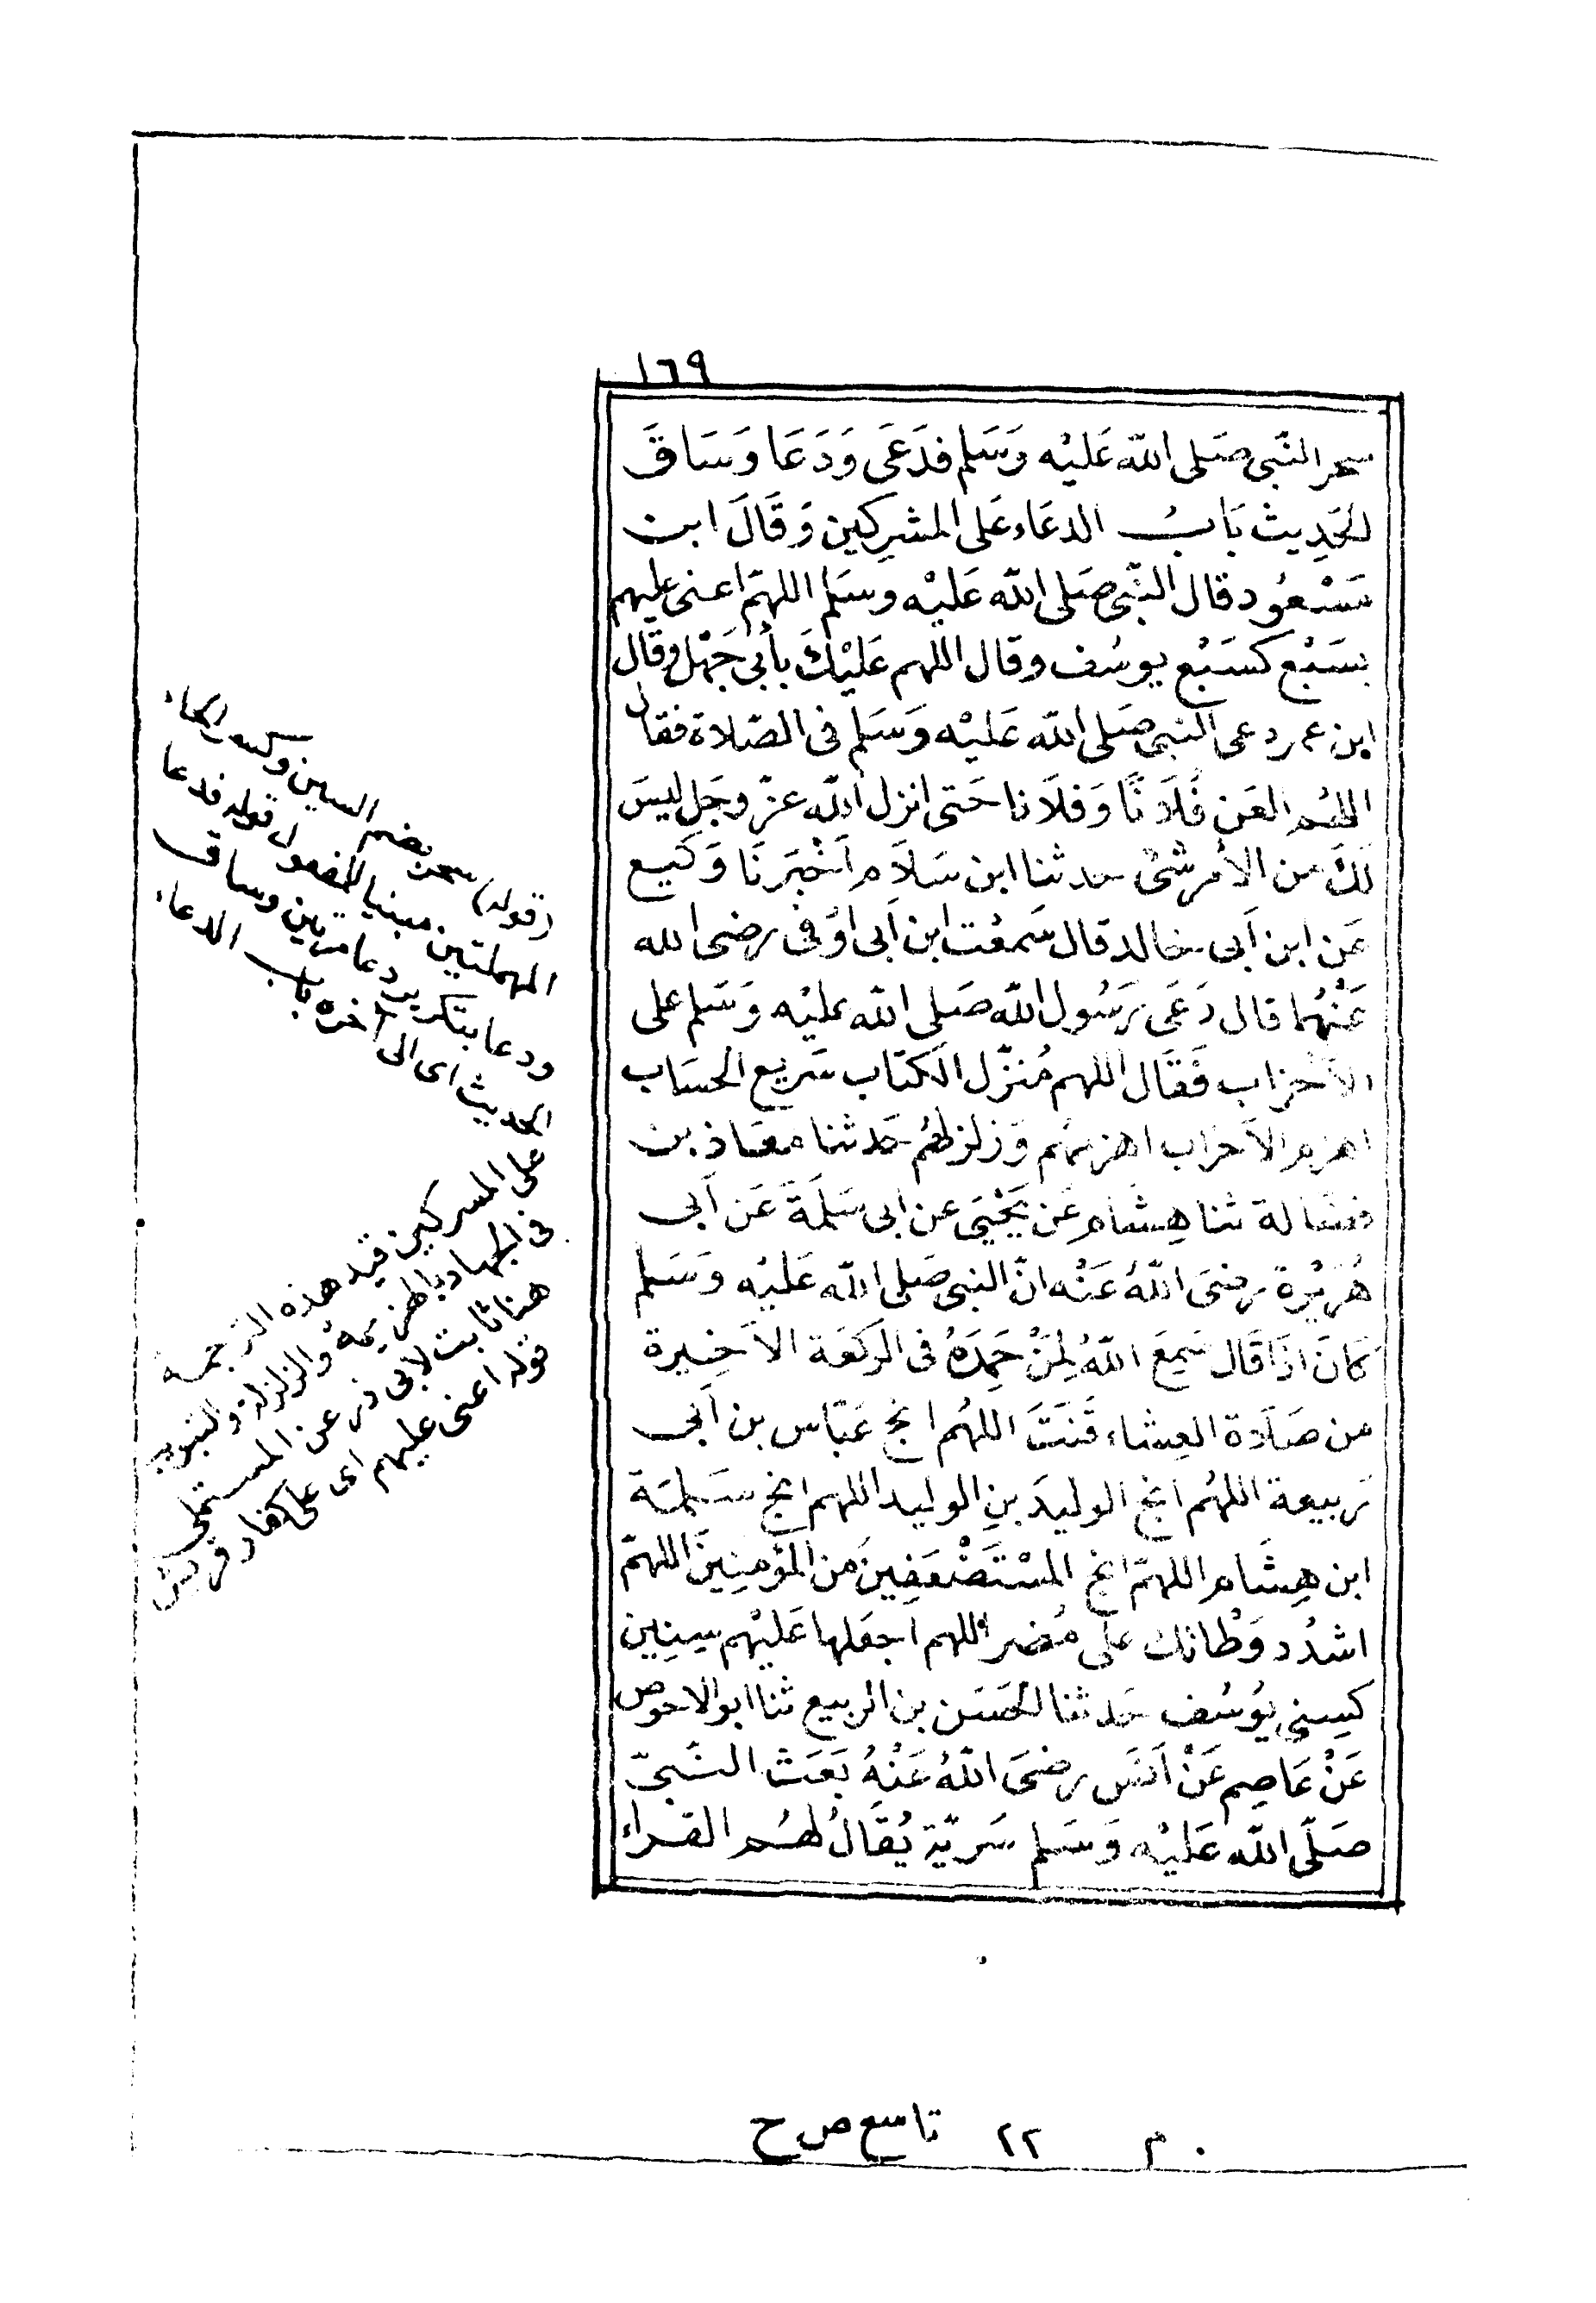 ١٦٩
سحر النَّبى صَلى الله عَليْه وَسَلم فدَعَى وَدَعَا وَسَاقَ
الحَدِيث بَابُ الدعَاء عَلى المشرِكين وَقَالَ ابن
مَسْعُود قال النَّبى صَلى الله عَليْه وسَلم اللهمّ اعنى عليهم
بسَبْع كسَبْع يوسُف وقال اللهم عَليْكَ بأبى جَهْل وقال
ابن عمر دعى النبى صَلى الله عَليْه وَسَلم فى الصّلاة فقال
اللهُم العَن فُلَانًا وَفلَانا حَتى انزل الله عزّ وجَل ليسَ
لكَ من الأمْر شئ حدثنا ابن سَلَام أخْبَرنَا وَكيع
عَن ابن أبى خالد قال سَمعْت ابن أبى اوْفى رضى الله
عَنْهُما قال دَعَى رَسُول الله صَلى الله عليْه وَسَلم على
الأحْزاب فَقَال اللهم مُنزّل الكتَاب سَريع الحسَاب
اهزم الأحزاب اهزمهُم وَزلزلهُم حَدثنا معَاذ بن
فضَالة ثنا هِشَام عَن يَحْيَى عن ابى سَلَمَةَ عَن أبى
هُرَيْرة رضىَ اللهُ عَنْه انّ النبى صَلى الله عَليْه وَسَلم
كانَ اذَا قَال سَمِعَ اللهُ لمَنْ حَمِدَهُ فى الركعَة الأخِيرة
من صَلَاة العِشاء قَنَتَ اللهُم انج عَيّاس بن أبى
رَبيعة اللهُم انج الوليدَ بنِ الوليد اللهم انج سَلمَة
ابن هِشَام اللهمّ انج المسْتَضْعَفِينَ من المؤمِنِينَ اللهمّ
اشدُد وَطْاتك على مُضر اللهم اجعَلها عَليْهم سِنِين
كسِنى يُوسُف حَدثنا الحسَن بن الربيع ثنا ابو الاحوص
عَنْ عَاصِم عَنْ أنَس رضىَ اللهُ عَنْهُ بَعَثَ النَّبىّ
صَلّى الله عَليْه وَسَلم سَريّة يُقَالُ لهُم القراء
(قوله) سحر بضم السين وكسر الحاء
المهملتين مبنيا للمفعول قوله فدعا
ودعا بتكرير دعا مرتين وساق
الحديث اى الى آخره باب الدعاء
على المشركين قيد هذه الترجمة
فى الجهاد بالهزيمة والزلزلة والتبويب
هنا ثابت لابى ذر عن المستملى
قوله اعنى عليهم اى على كفار قريش
م ٢٢ تاسع ص ح